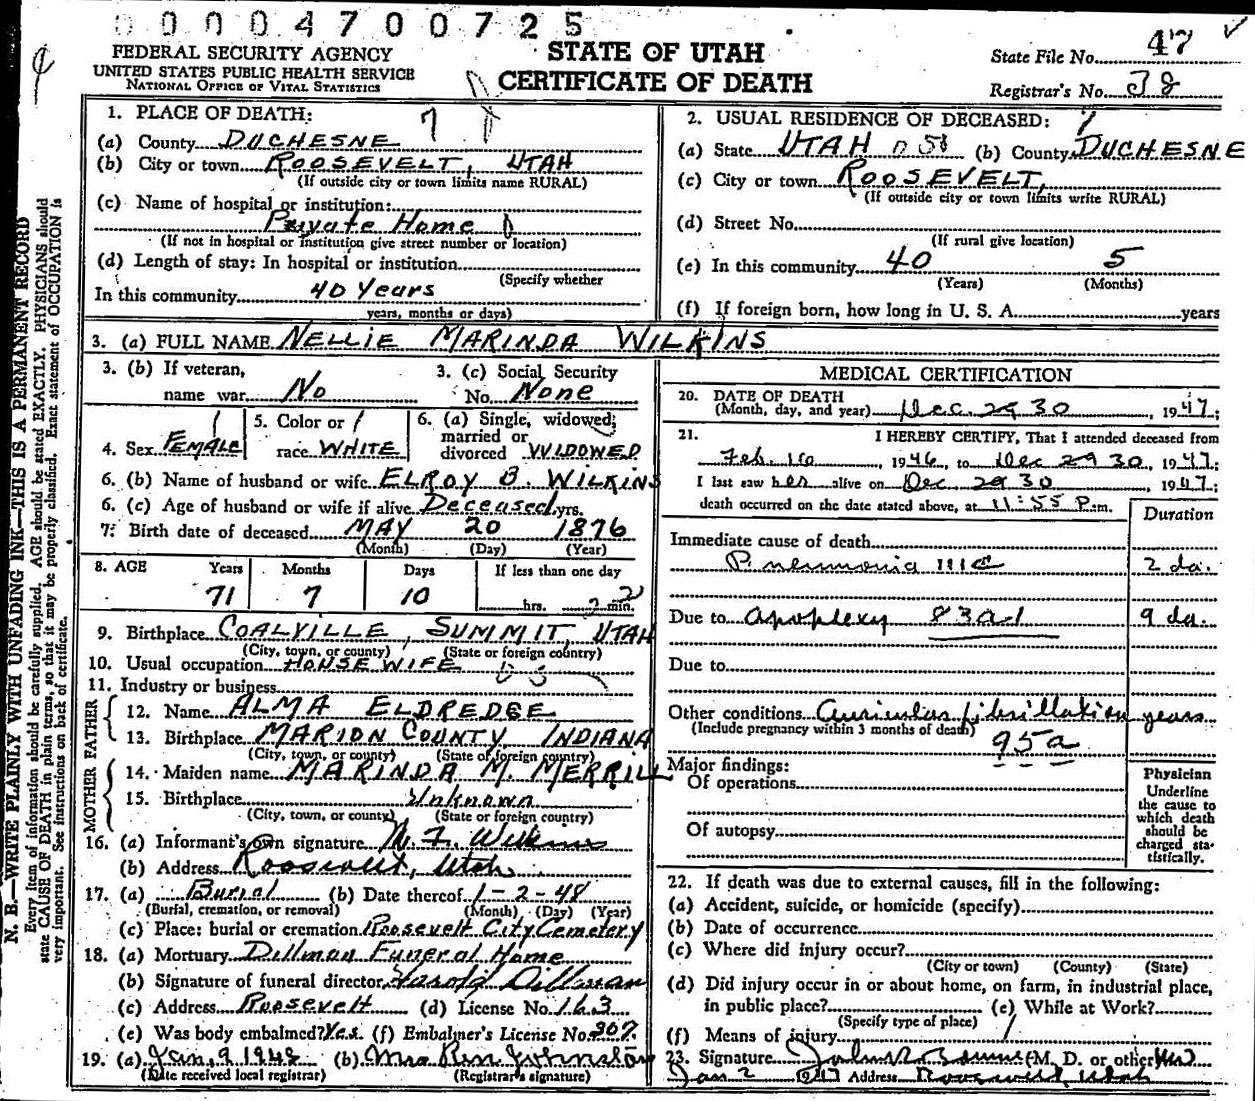 00004700725
FEDERAL SECURITY AGENCY
UNITED STATES PUBLIC HEALTH SERVICE
NATIONAL OFFICE OF VITAL STATISTICS
STATE OF UTAH
CERTIFICATE OF DEATH
State File No. 47
Registrar's No. 38
N. B.—WRITE PLAINLY WITH UNFADING INK—THIS IS A PERMANENT RECORD
Every item of information should be carefully supplied. AGE should be stated EXACTLY. PHYSICIANS should
state CAUSE OF DEATH in plain terms, so that it may be properly classified. Exact statement of OCCUPATION is
very important. See instructions on back of certificate.
1. PLACE OF DEATH: 7
(a) County DUCHESNE
(b) City or town ROOSEVELT, UTAH
(If outside city or town limits name RURAL)
(c) Name of hospital or institution:
Private Home
(If not in hospital or institution give street number or location)
(d) Length of stay: In hospital or institution
(Specify whether
In this community 40 Years
years, months or days)
2. USUAL RESIDENCE OF DECEASED: 7
(a) State UTAH (b) County DUCHESNE
(c) City or town ROOSEVELT,
(If outside city or town limits write RURAL)
(d) Street No.
(If rural give location)
(e) In this community 40 5
(Years) (Months)
(f) If foreign born, how long in U. S. A. years
3. (a) FULL NAME NELLIE MARINDA WILKINS
3. (b) If veteran,
name war No
3. (c) Social Security
No. None
4. Sex FEMALE
5. Color or
race WHITE
6. (a) Single, widowed,
married or
divorced WIDOWED
6. (b) Name of husband or wife ELROY B. WILKINS
6. (c) Age of husband or wife if alive Deceased yrs.
7. Birth date of deceased MAY 20 1876
(Month) (Day) (Year)
8. AGE Years Months Days If less than one day
71 7 10 hrs. min.
9. Birthplace COALVILLE, SUMMIT, UTAH
(City, town, or county) (State or foreign country)
10. Usual occupation HOUSE WIFE
11. Industry or business
FATHER
12. Name ALMA ELDREDGE
13. Birthplace MARION COUNTY INDIANA
(City, town, or county) (State or foreign country)
MOTHER
14. Maiden name MARINDA M. MERRILL
15. Birthplace Unknown
(City, town, or county) (State or foreign country)
16. (a) Informant's own signature Wilkins
(b) Address Roosevelt, Utah
17. (a) Burial (b) Date thereof 1-2-48
(Burial, cremation, or removal) (Month) (Day) (Year)
(c) Place: burial or cremation Roosevelt City Cemetery
18. (a) Mortuary Dillman Funeral Home
(b) Signature of funeral director Harold Dillman
(c) Address Roosevelt (d) License No. 163
(e) Was body embalmed? Yes. (f) Embalmer's License No. 307
19. (a) Jan. 9 1948 (b) Mrs Johnston
(Date received local registrar) (Registrar's signature)
MEDICAL CERTIFICATION
20. DATE OF DEATH
(Month, day, and year) Dec. 29 30, 1947;
21. I HEREBY CERTIFY, That I attended deceased from
Feb. 10, 1946, to Dec 29 30, 1947;
I last saw her alive on Dec 29 30, 1947;
death occurred on the date stated above, at 11:55 P. m.
Duration
Immediate cause of death
Pneumonia 2 da.
Due to apoplexy 83a1 9 da.
Due to
Other conditions Auricular fibrillation years
(Include pregnancy within 3 months of death)
95a
Major findings:
Of operations
Of autopsy
Physician
Underline
the cause to
which death
should be
charged sta-
tistically.
22. If death was due to external causes, fill in the following:
(a) Accident, suicide, or homicide (specify)
(b) Date of occurrence
(c) Where did injury occur?
(City or town) (County) (State)
(d) Did injury occur in or about home, on farm, in industrial place,
in public place? (e) While at Work?
(Specify type of place)
(f) Means of injury
23. Signature (M. D. or other)
Jan 2 1947 Address Roosevelt, Utah